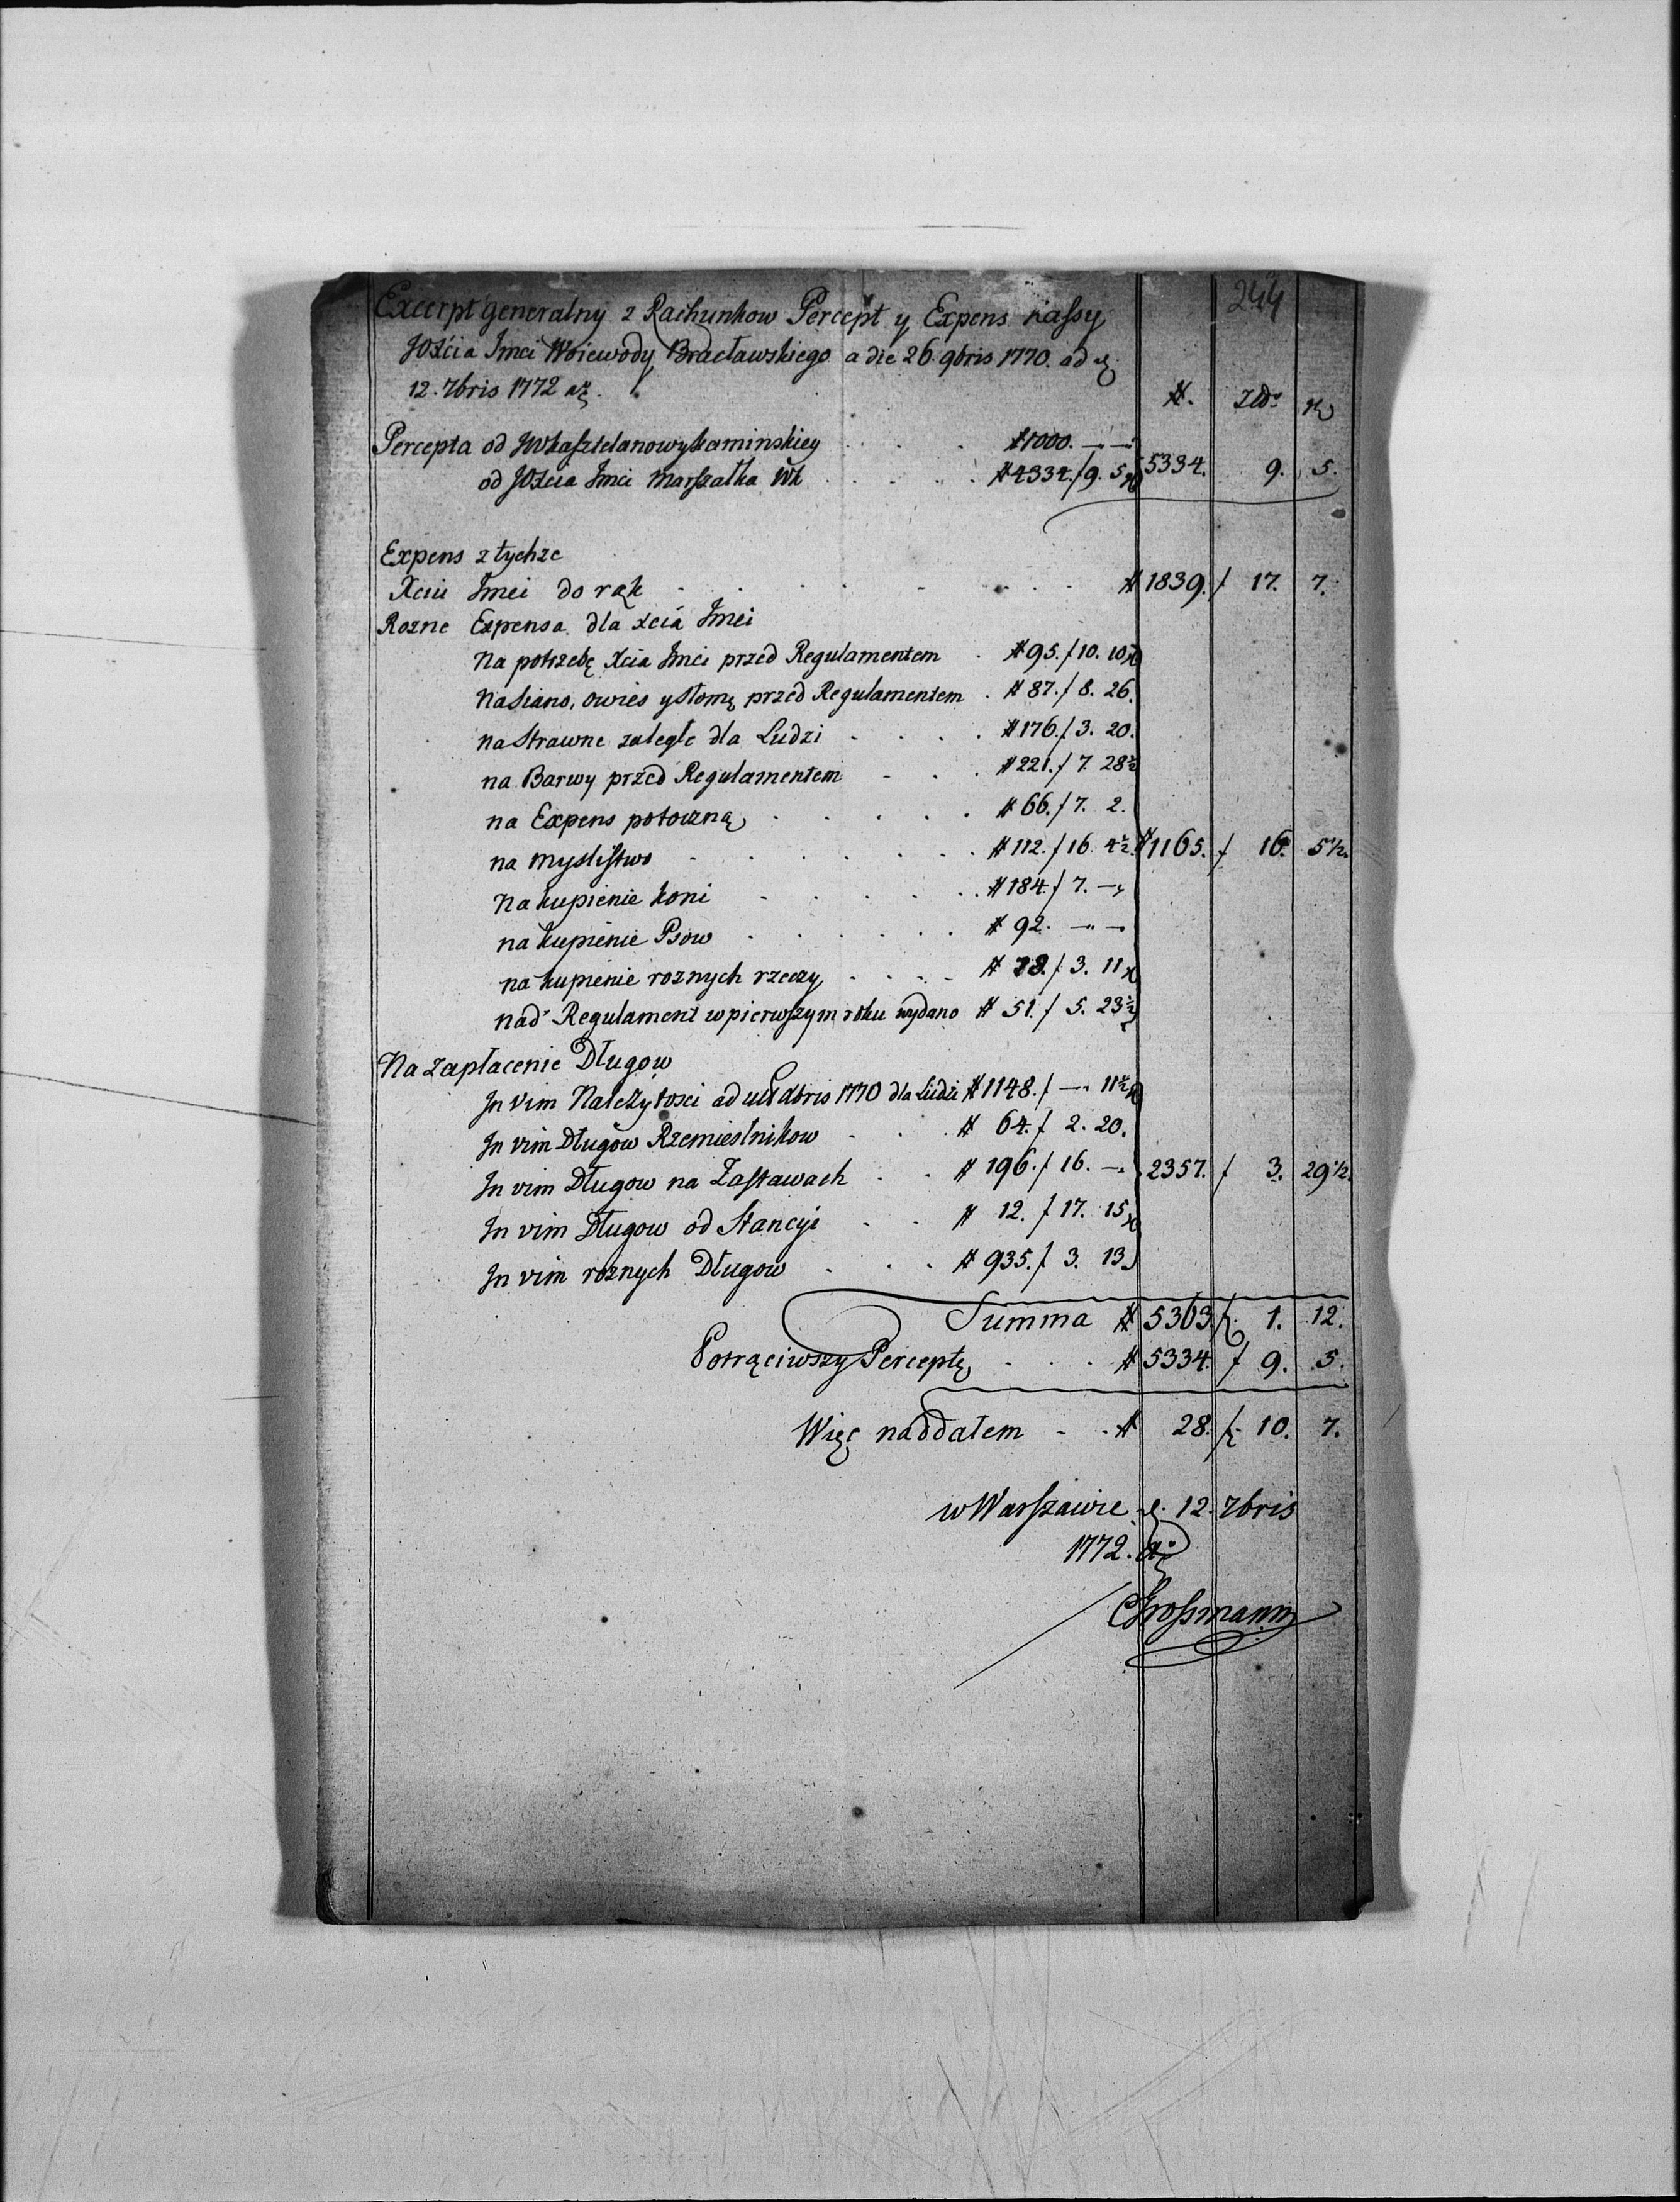 244
Excerpt generalny z Rachunkow Percept y Expens Kassy
JOXcia Jmci Woiewody Bracławskiego a die 26. 9bris 1770. ad d.
12. 7bris 1772
#. Zło.
Percepta od JWKasztelanowy Kaminskiey . . . #1000. — —
od JOXcia Jmci Marszałka WK . . . . . #4334. f 9. 5 5334. 9. 5.
Expens z tychze
Xciu Jmci do rąk . . . . . . . # 1839. f 17. 7.
Rozne Expensa dla Xcia Jmci
Na potrzebę Xcia Jmci przed Regulamentem . #95. f 10. 10
Na Siano, owies y Słomę przed Regulamentem . # 87. f 8. 26.
na Strawne zaległe dla Ludzi . . . . #176. f 3. 20.
na Barwy przed Regulamentem . . . #221. f 7. 28½
na Expens potoczną . . . . . # 66. f 7. 2.
na myslistwo . . . . . . . # 112. f 16. 4½. #1165. f 16. 5½.
Na kupienie koni . . . . . . # 184. f 7. —
na kupienie Psow . . . . . . # 92. — —
na kupienie roznych rzeczy . . . . # 78. f 3. 11
nad Regulament w pierwszym roku wydano # 51. f 5. 23½
Na zapłacenie Długow
In vim Należytosci ad 1770 dla Ludzi #1148. f — 11½
In vim Długow Rzemieslnikow . . . # 64. f 2. 20.
In vim Długow na Zastawach . . # 196. f 16. — 2357. f 3. 29½.
In vim Długow od Stancyi . . # 12. f 17. 15
In vim roznych Długow . . . # 935. f 3. 13
Summa # 5363. f 1. 12.
Potrąciwszy Perceptę . . . # 5334. f 9. 5.
Więc naddałem . . # 28. f 10. 7.
w Warszawie d. 12. 7bris
1772. a͞o
CGrossmann